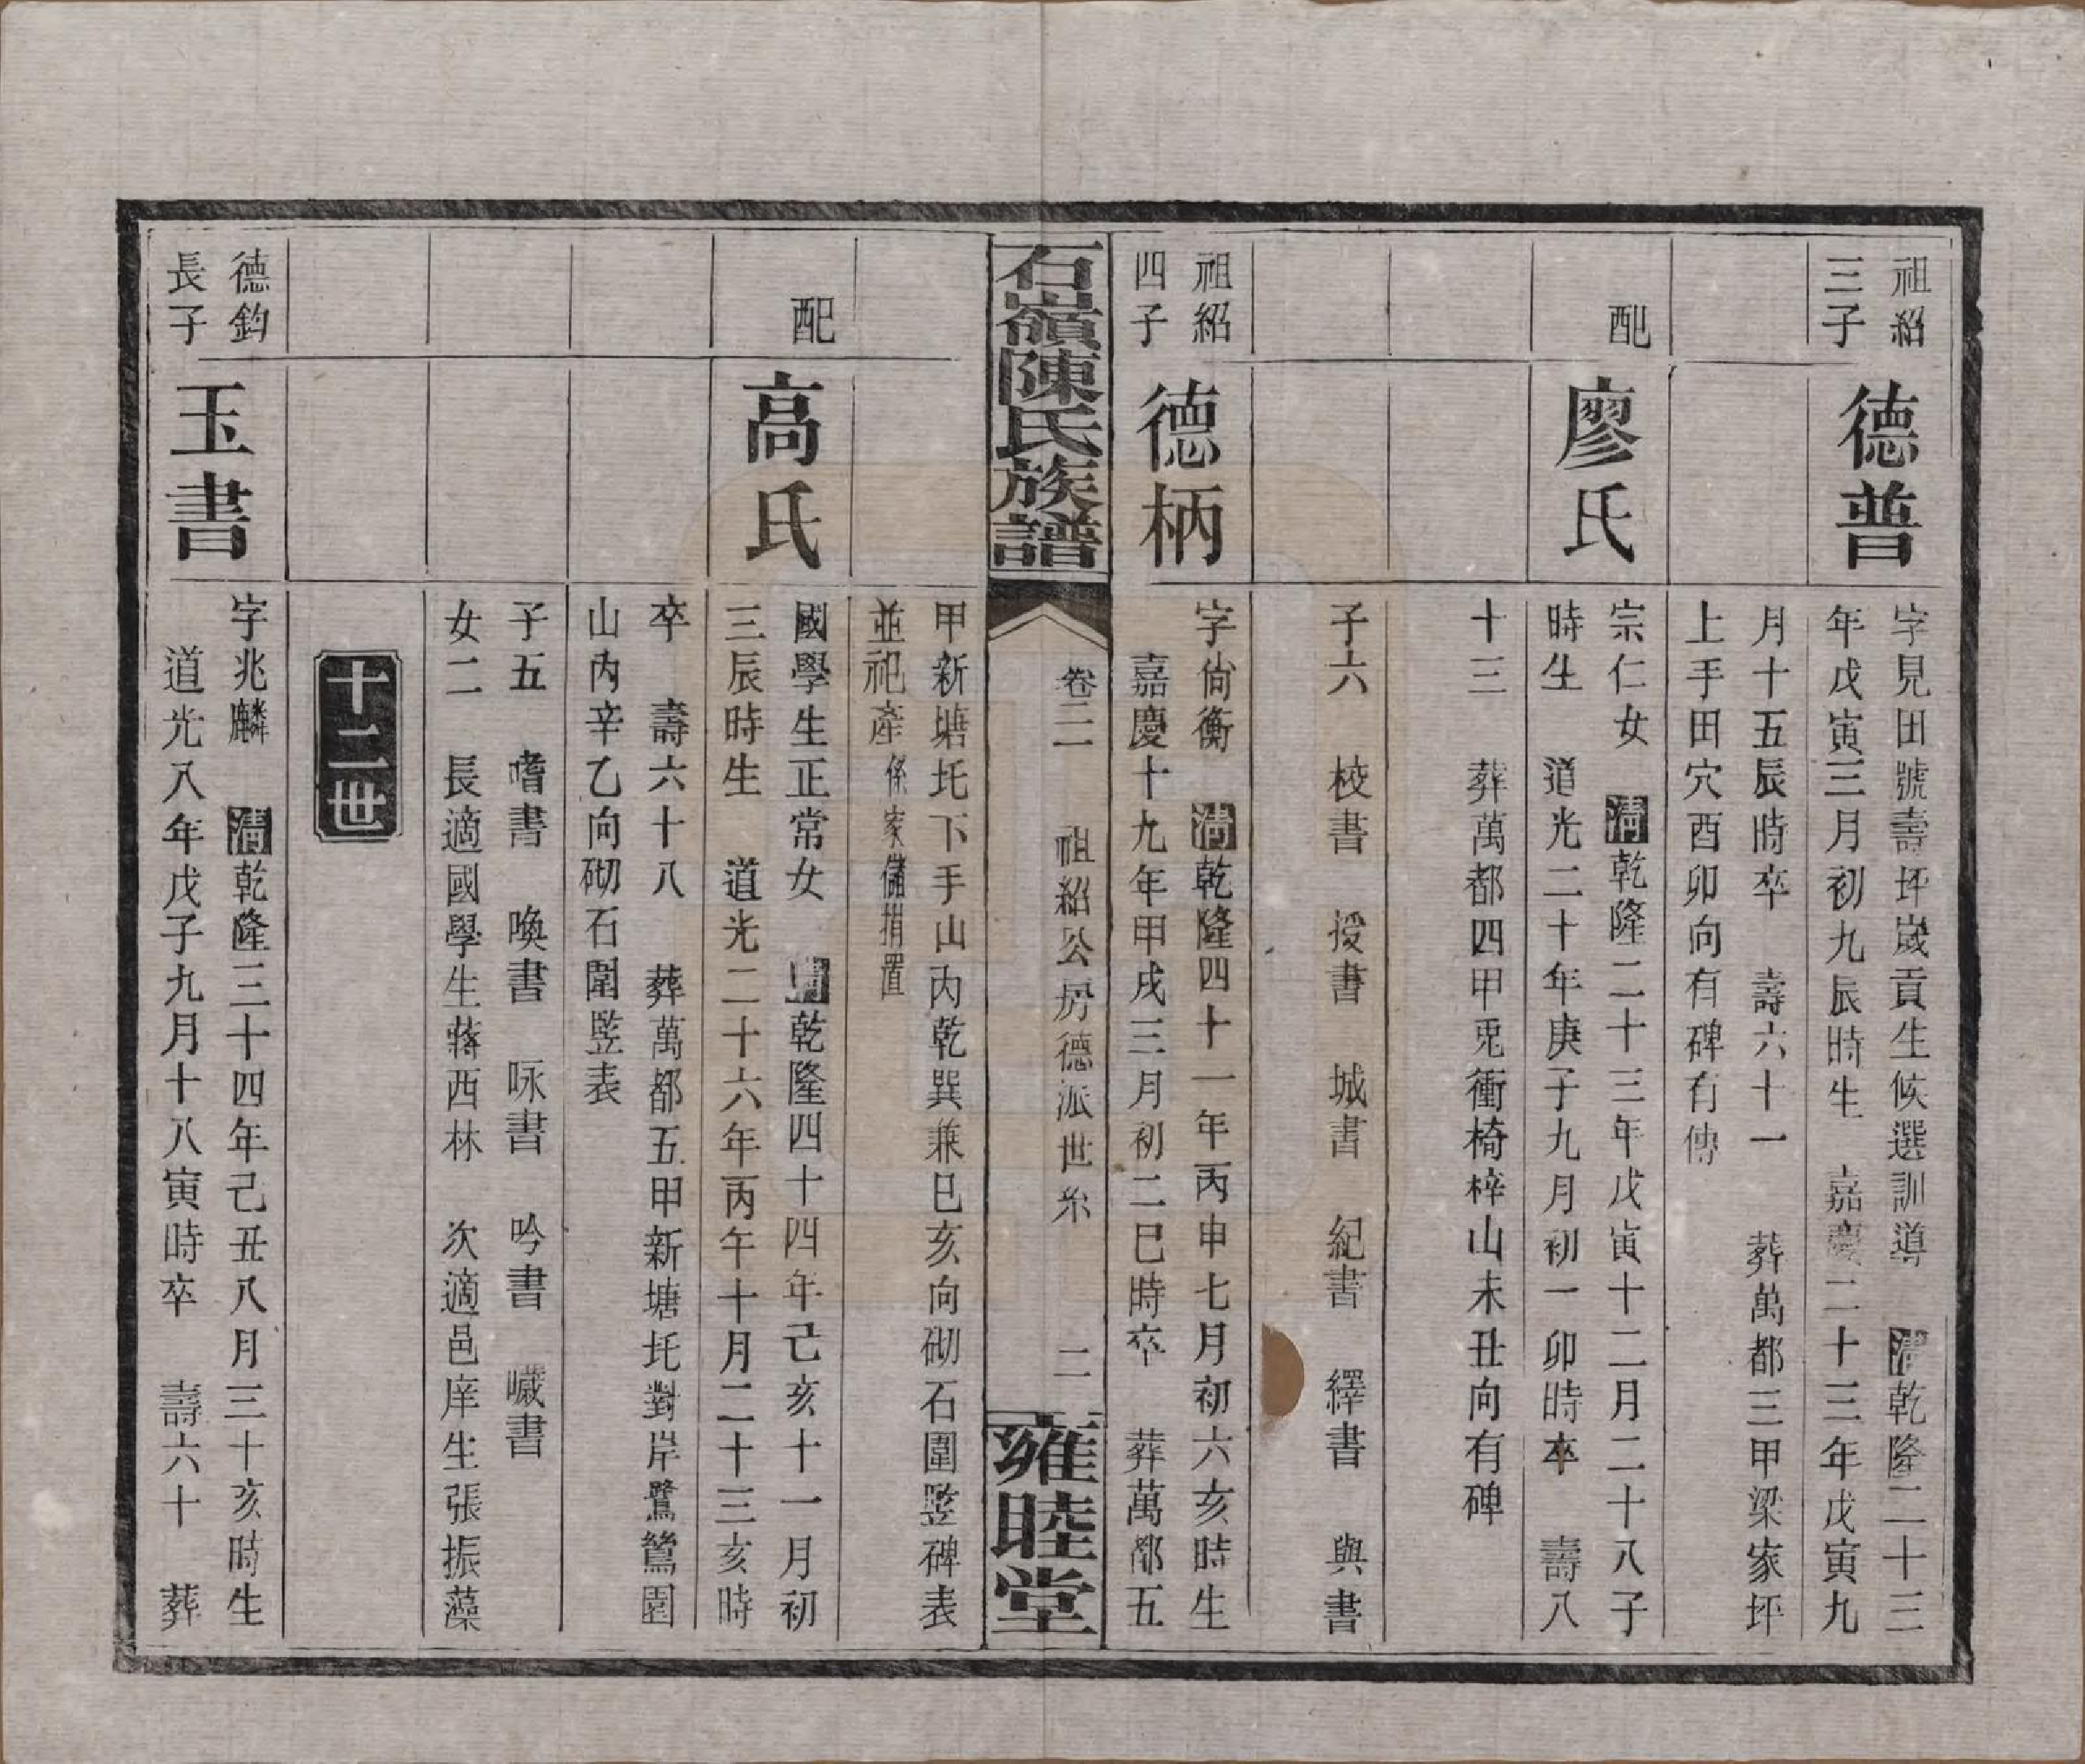 祖紹
三子
德普
字見田號壽坪歲貢生候選訓導 清乾隆二十三
年戊寅三月初九辰時生 嘉慶二十三年戊寅九
月十五辰時卒 壽六十一 葬萬都三甲梁家坪
上手田穴酉卯向有碑有傳
配
廖氏
宗仁女 清乾隆二十三年戊寅十二月二十八子
時生 道光二十年庚子九月初一卯時卒 壽八
十三 葬萬都四甲兎衝椅梓山未丑向有碑
子六 校書 授書 城書 紀書 繹書 與書
祖紹
四子
德柄
字尙衡 清乾隆四十一年丙申七月初六亥時生
嘉慶十九年甲戌三月初二巳時卒 葬萬都五
石嶺陳氏族譜
卷二 祖紹公房德派世系 二
雍睦堂
甲新塘圫下手山內乾巽兼巳亥向砌石圍竪碑表
並祀產係家儲捐置
配
高氏
國學生正常女 清乾隆四十四年己亥十一月初
三辰時生 道光二十六年丙午十月二十三亥時
卒 壽六十八 葬萬都五甲新塘圫對岸鷺鶿園
山內辛乙向砌石圍竪表
子五 嗜書 喚書 咏書 吟書 嚱書
女二 長適國學生蔣西林 次適邑庠生張振藻
十二世
德鈞
長子
玉書
字兆麟 清乾隆三十四年己丑八月三十亥時生
道光八年戊子九月十八寅時卒 壽六十 葬